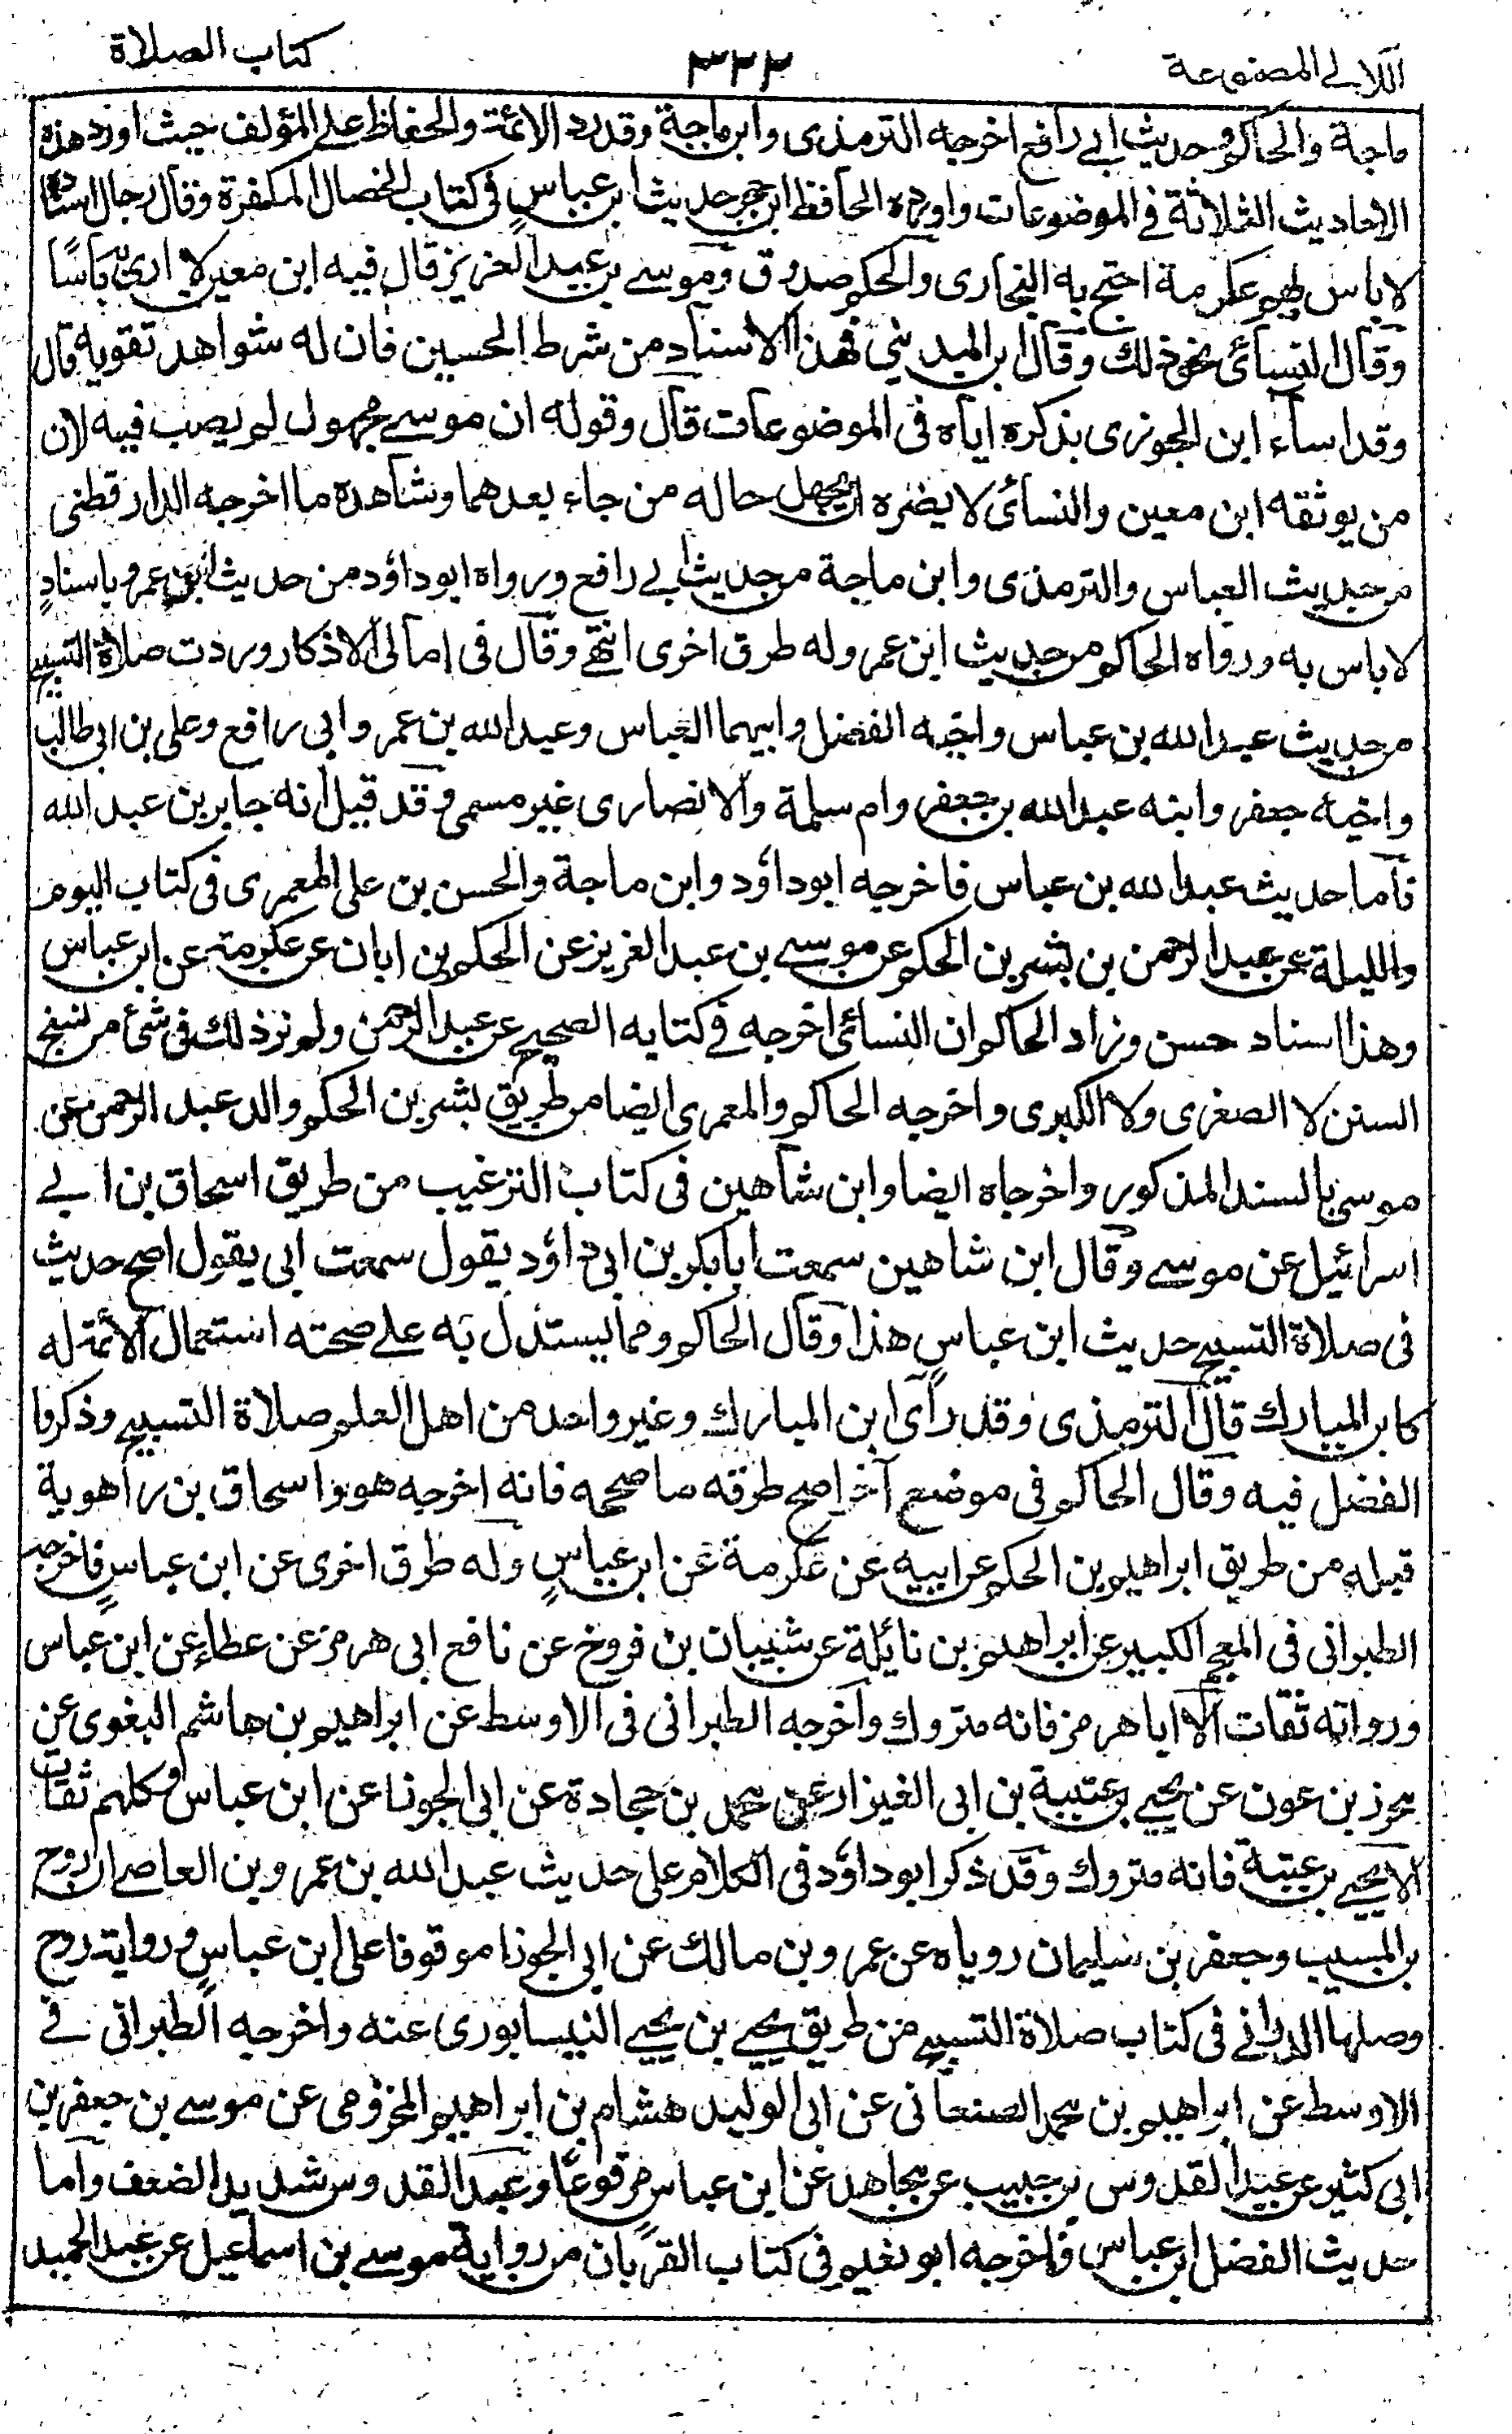 اللآلي المصنوعة
٣٢٢
كتاب الصلاة
ماجة والحاكم وحديث ابي رافع اخرجه الترمذى وابن ماجة وقد رد الائمة والحفاظ على المؤلف حيث اورد هذه
الاحاديث الثلاثة في الموضوعات واورده الحافظ ابن حجر حديث ابن عباس في كتاب الخصال المكفرة وقال رجال اسناده
لا باس بهم عكرمة احتج به البخارى والحكم صدوق وموسى بن عبد العزيز قال فيه ابن معين لا ارى به بأسًا
وقال النسائى نحو ذلك وقال ابن المديني فهذا الاسناد من شرط الحسن فان له شواهد تقويه قال
وقد اساء ابن الجوزى بذكره اياه فى الموضوعات قال وقوله ان موسى مجهول لم يصب فيه لان
من يوثقه ابن معين والنسائى لا يضره ان يجهل حاله من جاء بعدهما وشاهده ما اخرجه الدارقطنى
من حديث العباس والترمذى وابن ماجة من حديث ابي رافع ورواه ابوداؤد من حديث ابن عمرو باسنادٍ
لا باس به ورواه الحاكم من حديث ابن عمر وله طرق اخرى انتهى وقال فى امالى الاذكار وردت صلاة التسبيح
من حديث عبد الله بن عباس واخيه الفضل وابيهما العباس وعبد الله بن عمر وابى رافع وعلى بن ابى طالب
واخيه جعفر وابنه عبد الله بن جعفر وام سلمة والانصارى غير مسمى وقد قيل انه جابر بن عبد الله
فأما حديث عبد الله بن عباس فاخرجه ابوداؤد وابن ماجة والحسن بن على المعمرى فى كتاب اليوم
والليلة عن عبد الرحمن بن بشر بن الحكم عن موسى بن عبد العزيز عن الحكم بن ابان عن عكرمة عن ابن عباس
وهذا اسناد حسن وزاد الحاكم ان النسائى اخرجه فى كتابه الصحيح عن عبد الرحمن ولم نر ذلك فى شئ من نسخ
السنن لا الصغرى ولا الكبرى واخرجه الحاكم والمعمرى ايضا من طريق بشر بن الحكم والد عبد الرحمن عن
موسى بالسند المذكور واخرجاه ايضا وابن شاهين فى كتاب الترغيب من طريق اسحاق بن ابي
اسرائيل عن موسى وقال ابن شاهين سمعت ابابكر بن ابى داؤد يقول سمعت ابى يقول اصح حديث
فى صلاة التسبيح حديث ابن عباس هذا وقال الحاكم ومما يستدل به على صحته استعمال الائمة له
كابن المبارك قال الترمذى وقد رأى ابن المبارك وغير واحد من اهل العلم صلاة التسبيح وذكروا
الفضل فيه وقال الحاكم فى موضع آخر اصح طرقه ما صححه فانه اخرجه هو واسحاق بن راهوية
قبله من طريق ابراهيم بن الحكم عن ابيه عن عكرمة عن ابن عباس وله طرق اخرى عن ابن عباس فاخرجه
الطبرانى فى المعجم الكبير عن ابراهيم بن نائلة عن شيبان بن فروخ عن نافع ابى هرمز عن عطاء عن ابن عباس
ورواته ثقات الا ابا هرمز فانه متروك واخرجه الطبرانى فى الاوسط عن ابراهيم بن هاشم البغوى عن
محرز بن عون عن يحيى بن عتيبة بن ابى الغيزار عن محمد بن حجادة عن ابى الجوزا عن ابن عباس وكلهم ثقات
الا يحيى بن عتبة فانه متروك وقد ذكر ابوداؤد فى الكلام على حديث عبد الله بن عمرو بن العاصى ان روح
بن المسيب وجعفر بن سليمان روياه عن عمرو بن مالك عن ابى الجوزا موقوفا على ابن عباس ورواية روح
وصلها الدارانى فى كتاب صلاة التسبيح من طريق يحيى بن يحيى النيسابورى عنه واخرجه الطبرانى فى
الاوسط عن ابراهيم بن محمد الصنعانى عن ابى الوليد هشام بن ابراهيم المخزومى عن موسى بن جعفر بن
ابى كثير عن عبد القدوس بن حبيب عن مجاهد عن ابن عباس مرفوعًا وعبد القدوس شديد الضعف واما
حديث الفضل ابن عباس فاخرجه ابونعيم فى كتاب القربان من رواية موسى بن اسماعيل عن عبد الحميد